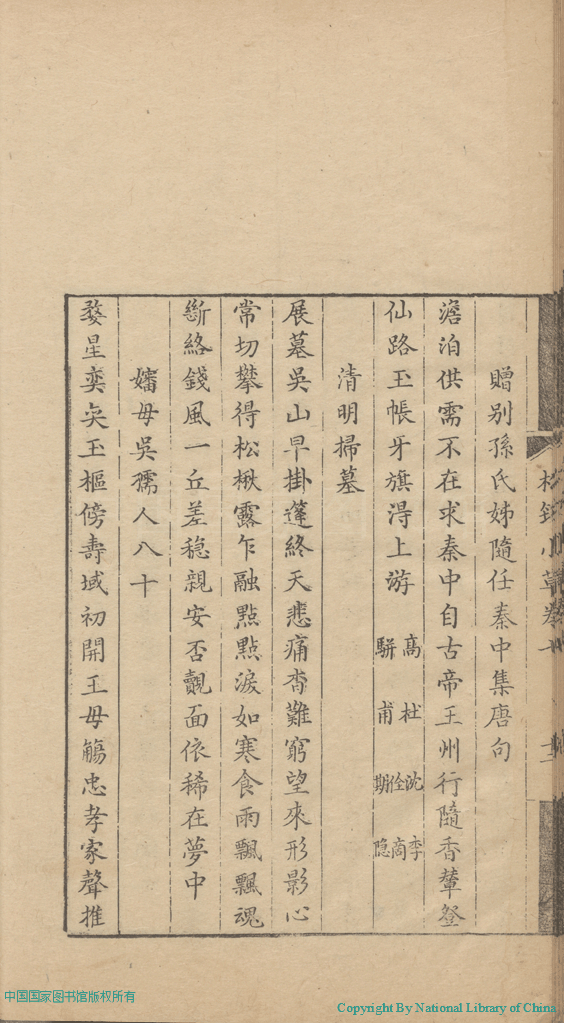 贈别孫氏姊隨任秦中集唐句
澹泊供需不在求秦中自古帝王州行隨香輦登
仙路玉帳牙旗淂上游 高駢 杜甫 沈佺期 李商隐
清明掃墓
展墓吳山早掛蓬終天悲痛杳難窮望來形影心
常切攀得松楸露乍融點點淚如寒食雨飄飄魂
斷絡錢風一丘差稳親安否覿面依稀在夢中
嬸母吳孺人八十
婺星奕奕玉樞傍壽域初開王母觴忠孝家聲推
中国国家图书馆版权所有
Copyright By National Library of China